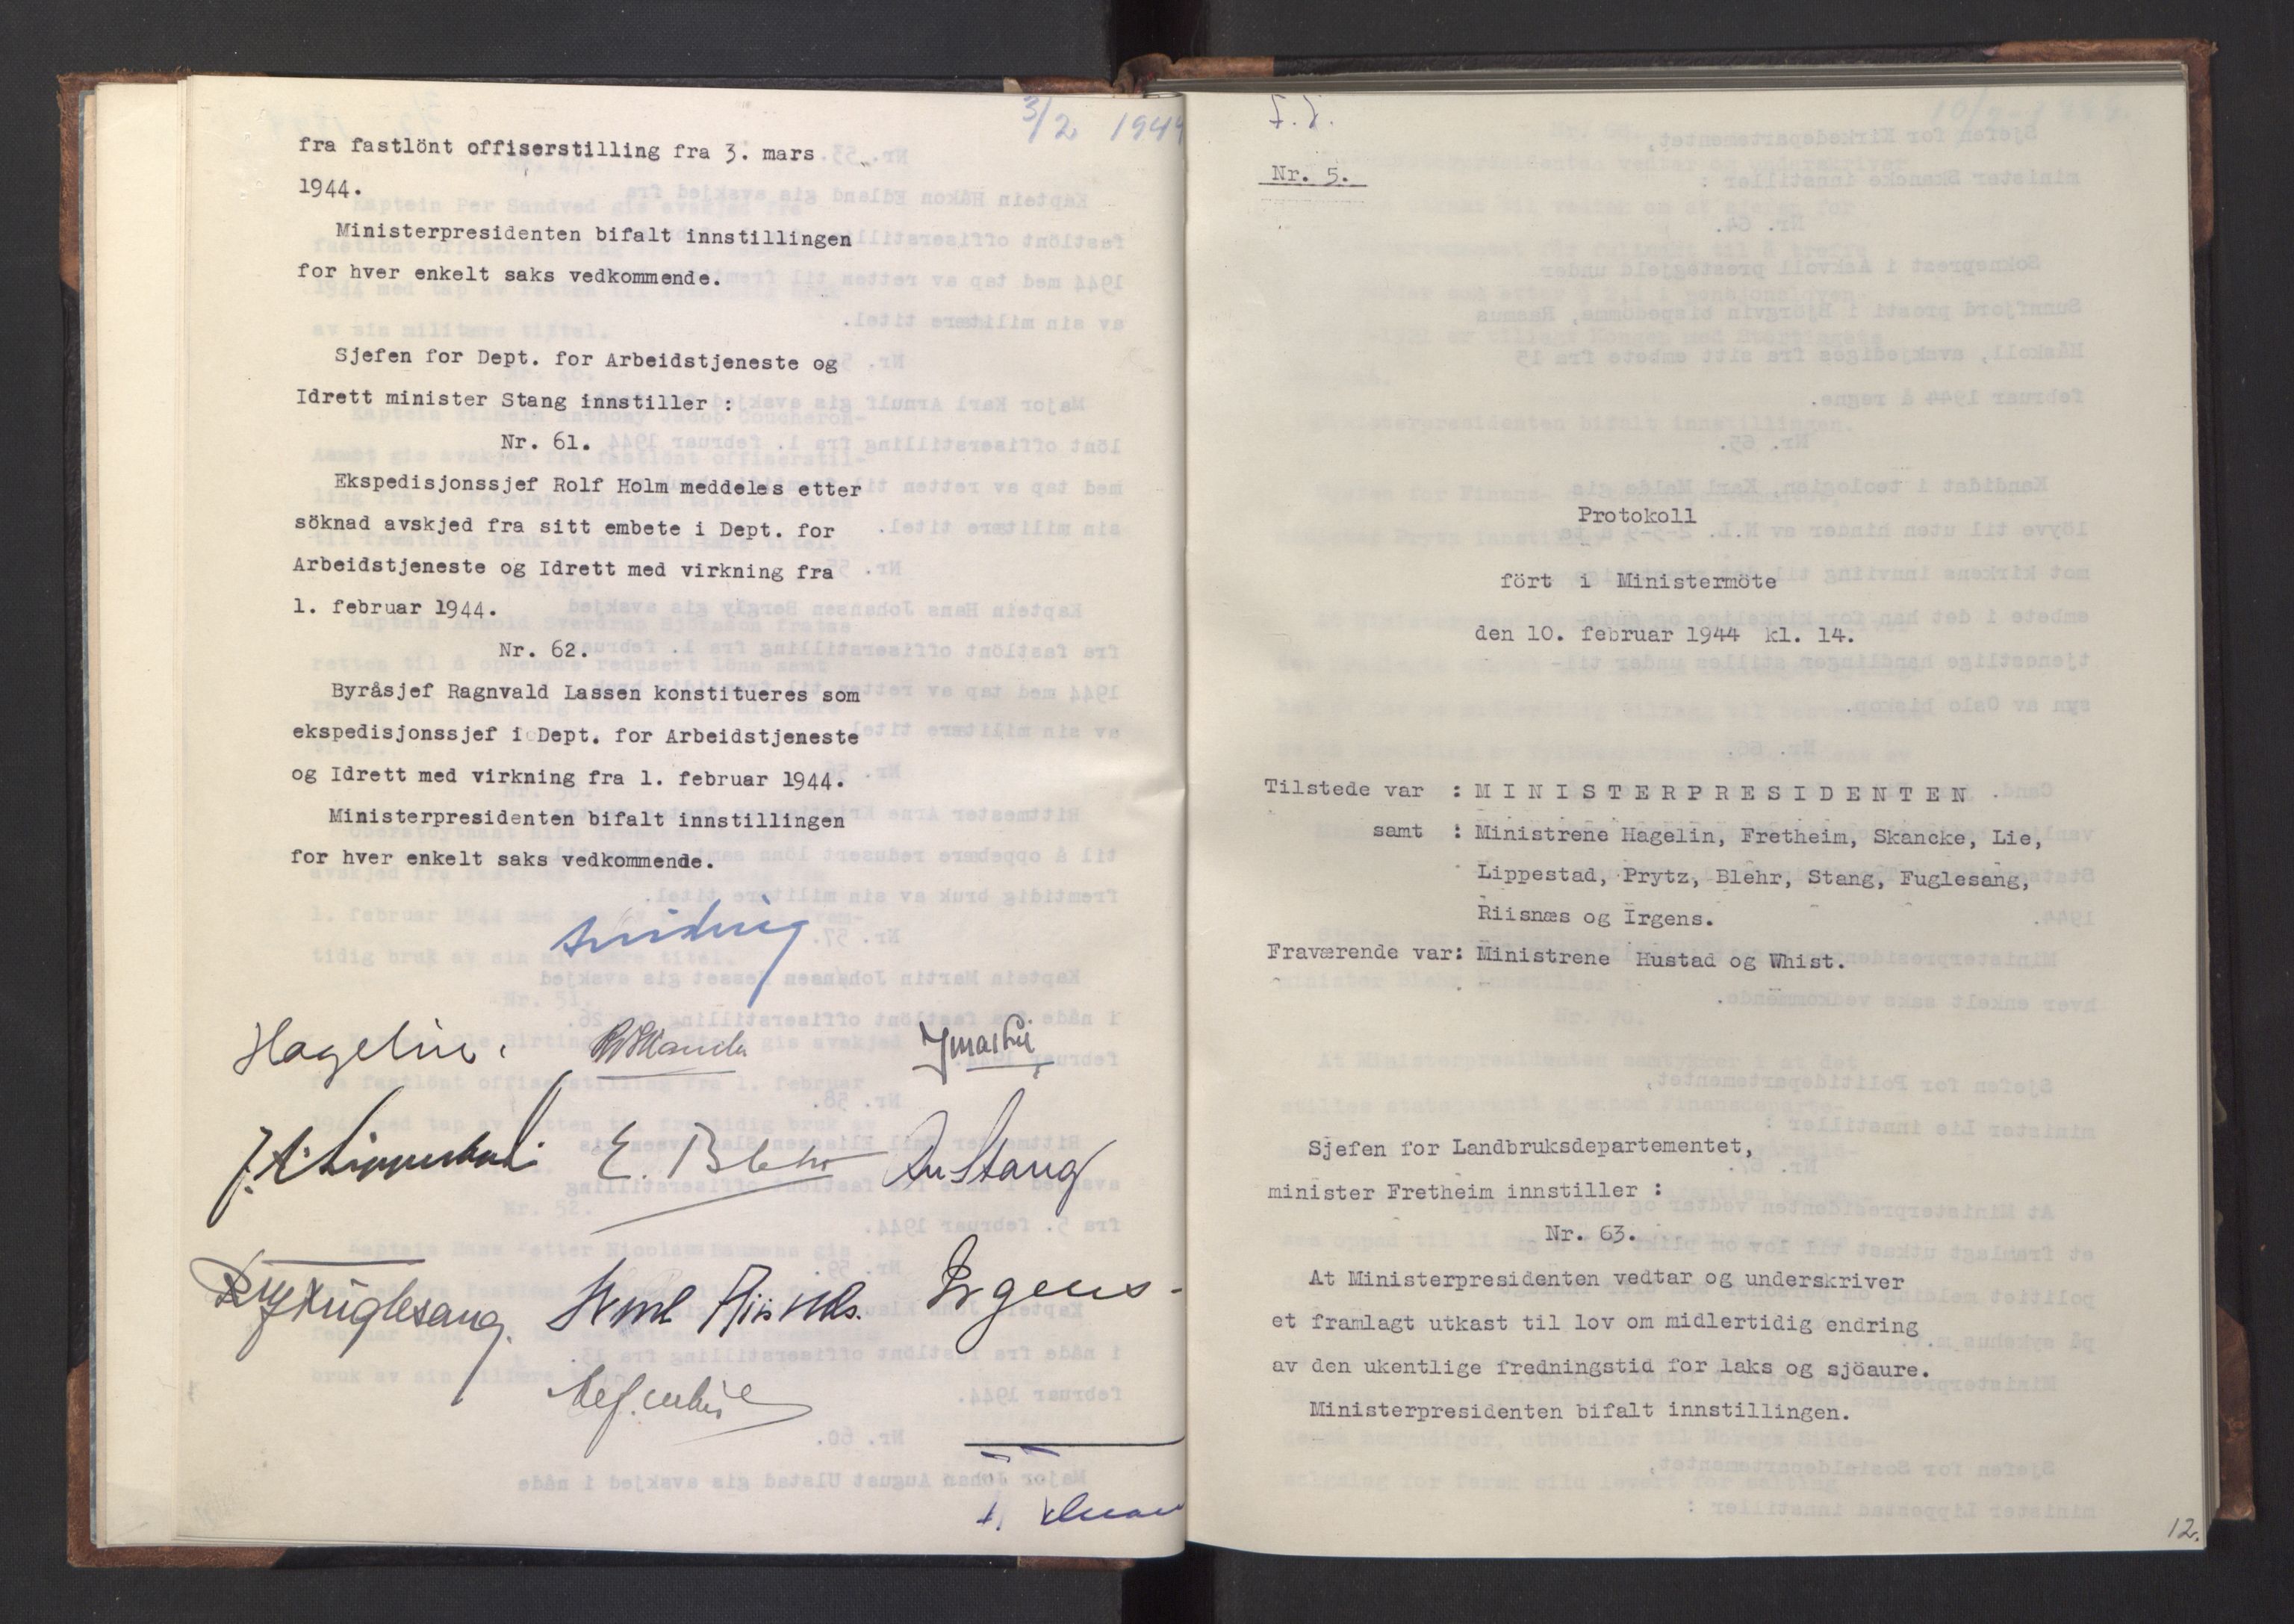 3/2 1944
fra fastlönt offiserstilling fra 3. mars
1944.
Ministerpresidenten bifalt innstillingen
for hver enkelt saks vedkommende.
Sjefen for Dept. for Arbeidstjeneste og
Idrett minister Stang innstiller :
Nr. 61.
Ekspedisjonssjef Rolf Holm meddeles etter
söknad avskjed fra sitt embete i Dept. for
Arbeidstjeneste og Idrett med virkning fra
1. februar 1944.
Nr. 62.
Byråsjef Ragnvald Lassen konstitueres som
ekspedisjonssjef i Dept. for Arbeidstjeneste
og Idrett med virkning fra 1. februar 1944.
Ministerpresidenten bifalt innstillingen
for hver enkelt saks vedkommende.
Hagelin.
E. Blehr
Stang
Fuglesang.
Riisnæs.
Irgens
Nr. 5.
Protokoll
fört i Ministermöte
den 10. februar 1944 kl. 14.
Tilstede var : MINISTERPRESIDENTEN
samt : Ministrene Hagelin, Fretheim, Skancke, Lie,
Lippestad, Prytz, Blehr, Stang, Fuglesang,
Riisnæs og Irgens.
Fraværende var: Ministrene Hustad og Whist.
Sjefen for Landbruksdepartementet,
minister Fretheim innstiller :
Nr. 63.
At Ministerpresidenten vedtar og underskriver
et framlagt utkast til lov om midlertidig endring
av den ukentlige fredningstid for laks og sjöaure.
Ministerpresidenten bifalt innstillingen.
12.